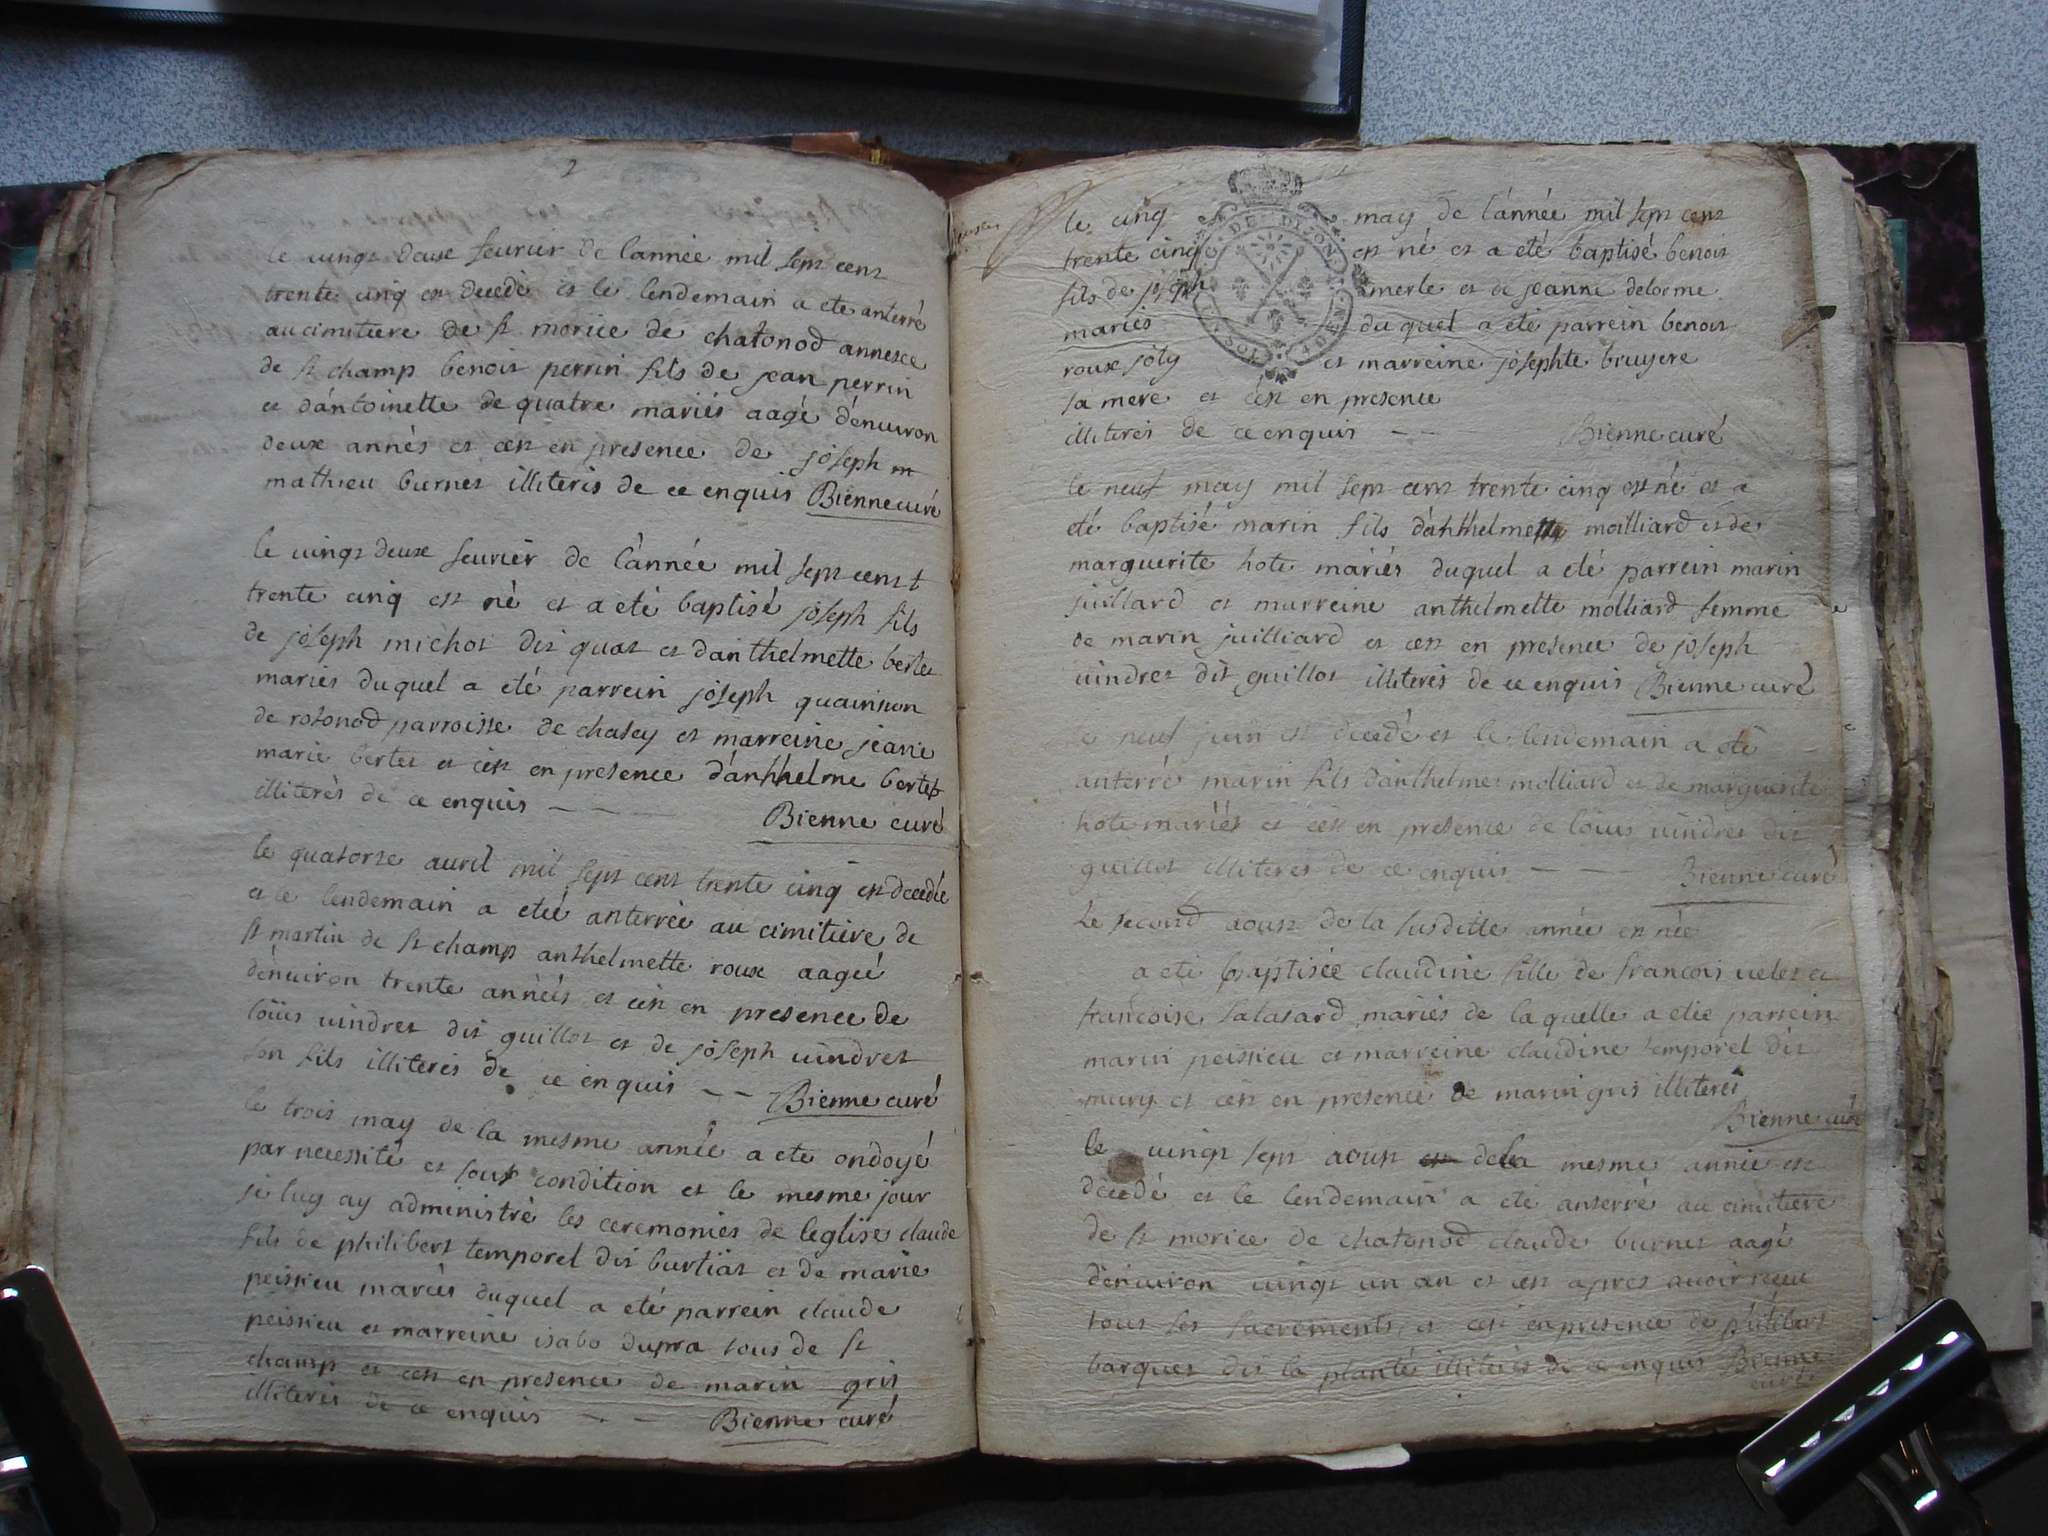 2
le vingt deux feurier de l'année mil sept cent
trente cinq est decedé et le lendemain a ete anterré
au cimitiere de st morice de chatonod annexce
de st champ benoit perrin fils de jean perrin
et d'antoinette de quatre mariés aagé d'enuiron
deux annés et cest en presence de joseph m
mathieu burnet illiterés de ce enquis Bienne curé
le vingt deux feurier de l'année mil sept cent
trente cinq est né et a eté baptisé joseph fils
de joseph michot dit quat et d'anthelmette bertet
mariés duquel a eté parrein joseph quainson
de rotonod parroisse de chasey et marreine jeane
marie bertet et cest en presence d'anthelme bertet
illiterés de ce enquis - - Bienne curé
le quatorze auril mil sept cent trente cinq est decedée
et le lendemain a eteé anterrée au cimitiere de
st martin de st champ anthelmette roux aageé
d'enuiron trente annéés et cest en presence de
loüis vindret dit guillot et de joseph vindret
son fils illiterés de ce enquis - - Bienne curé
le trois may de la mesme année a ete ondoyé
par necessité et sous condition et le mesme jour
je luy ay administré les ceremonies de leglise claude
fils de philibert temporel dit burtiat et de marie
peissieu mariés duquel a eté parrein claude
peissieu et marreine isabo dupra tous de st
champ et cest en presence de marin gris
illiterés de ce enquis - - Bienne curé
le cinq may de l'année mil sept cent
trente cinq est né et a eté baptisé benoit
fils de joseph merle et de jeanne delorme
mariés duquel a eté parrein benoit
roux joly et marreine josephte bruyere
sa mere et cest en presence
illiterés de ce enquis - - Bienne curé
DE DIJON
le neuf may mil sept cent trente cinq est né et a
eté baptisé marin fils d'anthelme moilliard et de
marguerite hote mariés duquel a eté parrein marin
juillard et marreine anthelmette molliard femme
de marin juilliard et cest en presence de joseph
vindret dit guillot illiterés de ce enquis Bienne curé
le neuf juin est decedé et le lendemain a eté
anterré marin fils d'anthelme molliard et de marguerite
hote mariés et cest en presence de loüis vindret dit
guillot illiterés de ce enquis - - Bienne curé
Le second aoust de la susditte année est née
a eté baptisée claudine fille de francois velet et
francoise salasard mariés de laquelle a eteé parrein
marin peissieu et marreine claudine temporel dit
mury et cest en presence de marin gris illiterés
Bienne curé
le vingt sept aoust est de la mesme année est
decedé et le lendemain a eté anterré au cimitiere
de st morice de chatonod claude burnet aagé
d'enuiron vingt un an et cest apres auoir receu
tous ses sacrements et cest en presence de philibert
barquet dit la plante illiterés de ce enquis Bienne
curé